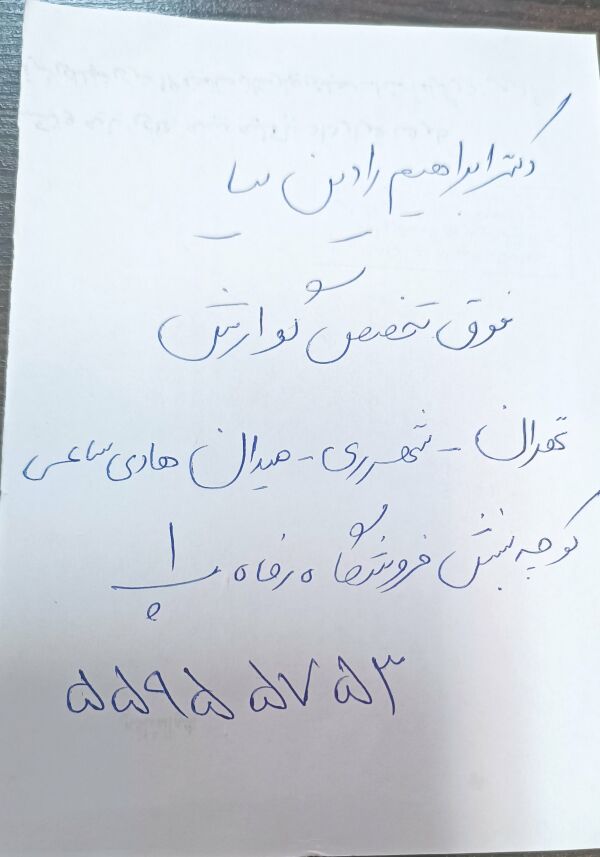 دکتر ابراهیم رادین نیا
فوق تخصص گوارش
تهران - شهرری - میدان هادی ساعی
کوچه نبش فروشگاه رفاه پ ۱
۵۵۹۵۵۷۵۳